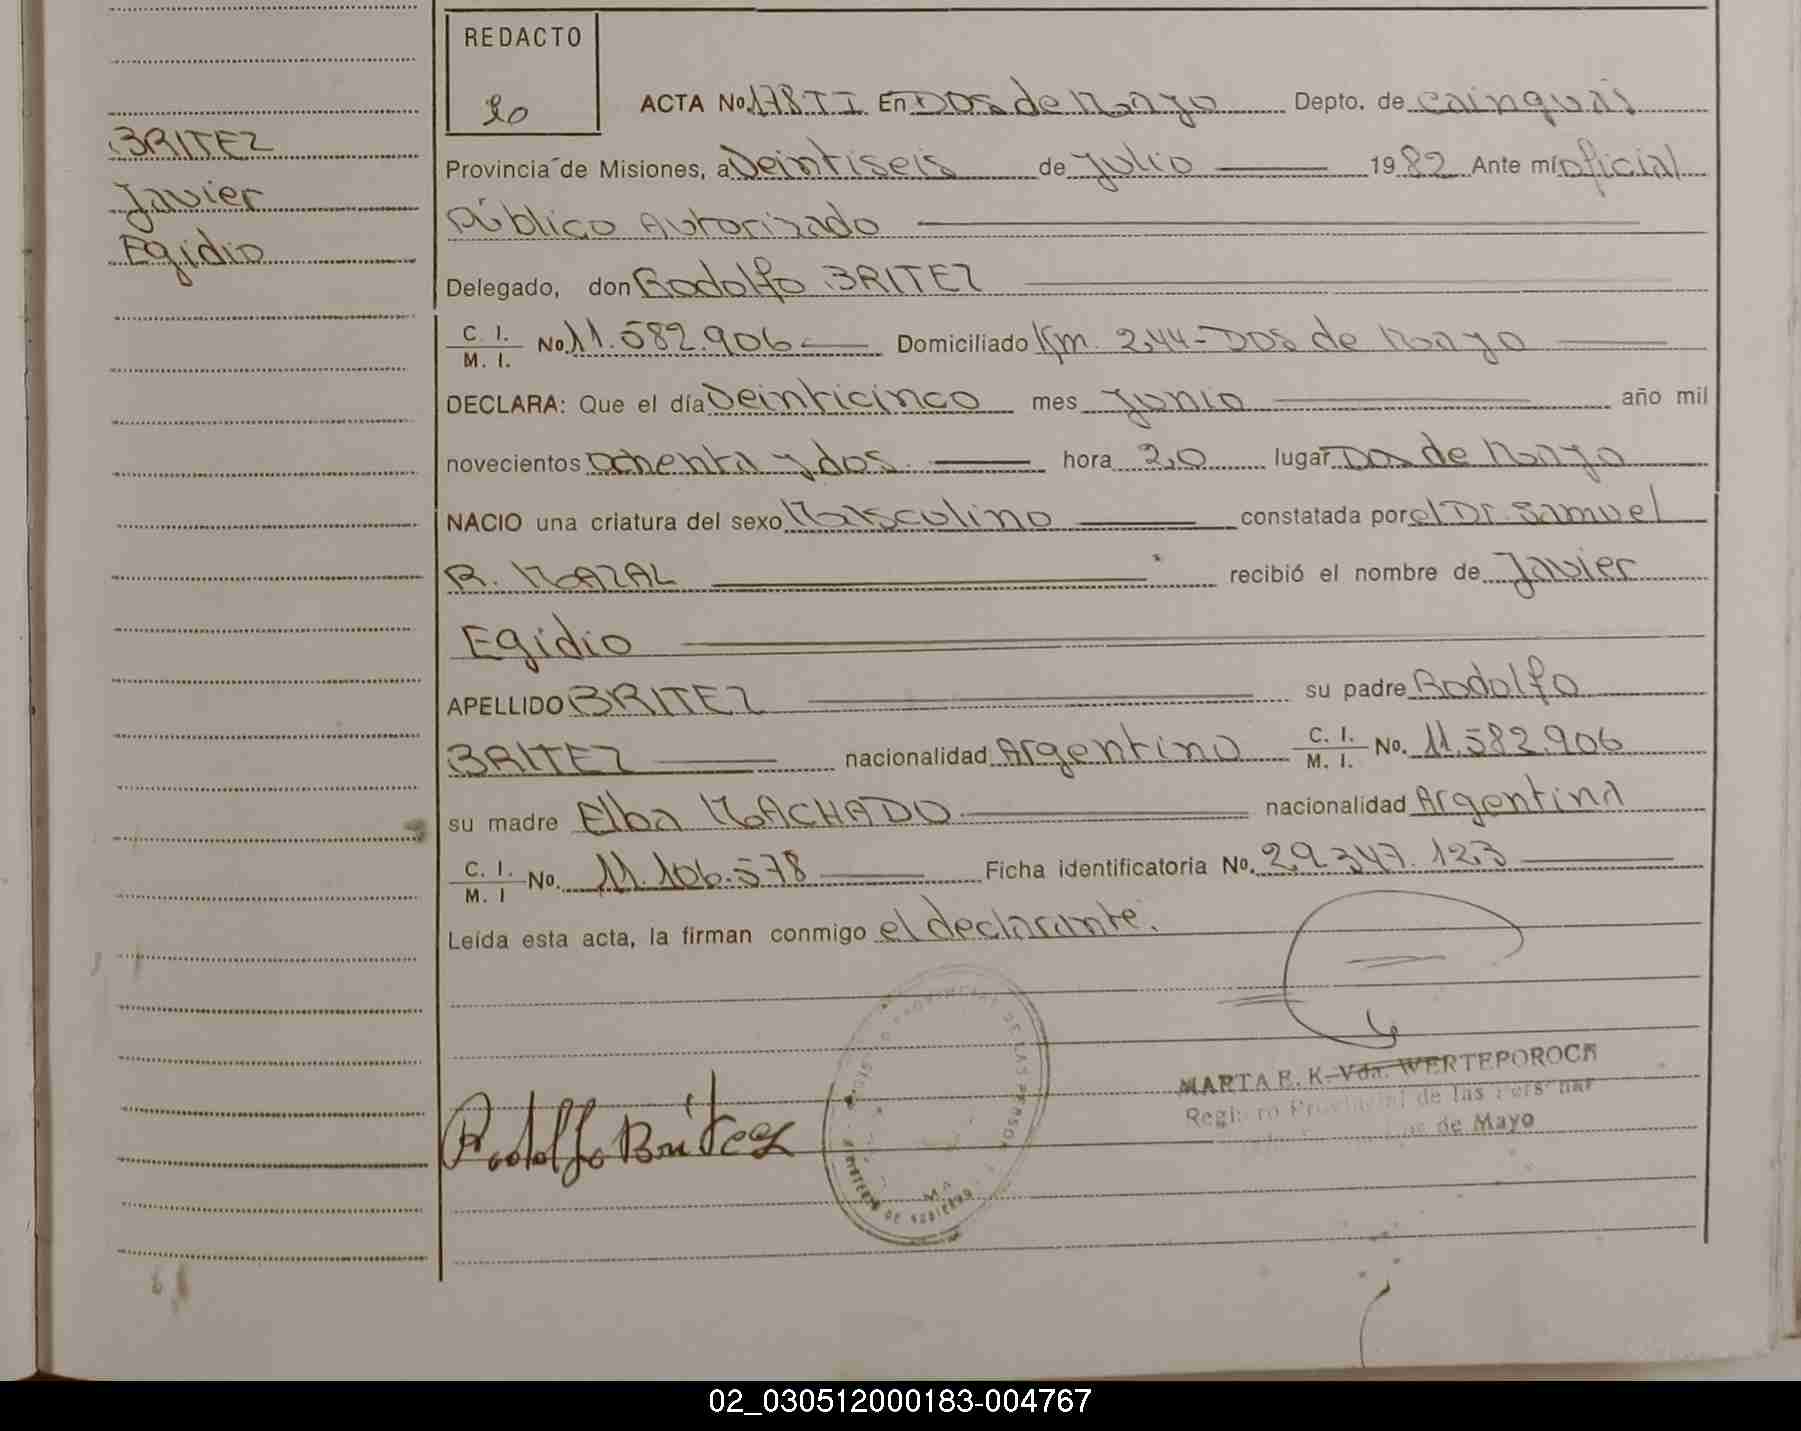 REDACTO
ACTA No. 178 T I En Dos de Mayo Depto. de Cainguás
BRITEZ
Javier
Egidio
Provincia de Misiones, a Veintiseis de Julio 1982 Ante mí oficial
Público Autorizado
Delegado, don Rodolfo BRITEZ
C. I. / M. I. No. 11.582.906 Domiciliado Km. 244 - Dos de Mayo
DECLARA: Que el día Veinticinco mes Junio año mil
novecientos ochenta y dos hora 20 lugar Dos de Mayo
NACIO una criatura del sexo Masculino constatada por el Dr. Samuel
R. MAZAL recibió el nombre de Javier
Egidio
APELLIDO BRITEZ su padre Rodolfo
BRITEZ nacionalidad Argentino C. I. / M. I. No. 11.582.906
su madre Elba MACHADO nacionalidad Argentina
C. I. / M. I No. 11.106.578 Ficha identificatoria No. 29.347.123
Leída esta acta, la firman conmigo el declarante.
Rodolfo Britez
MARTA E. K. Vda. WERTEPOROCH
Registro Provincial de las Personas
de Mayo
02_030512000183-004767